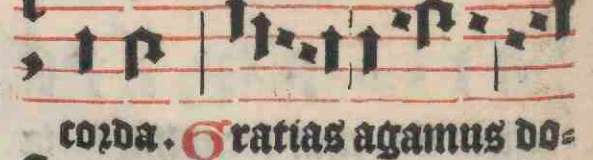 corda. Gratias agamus do-